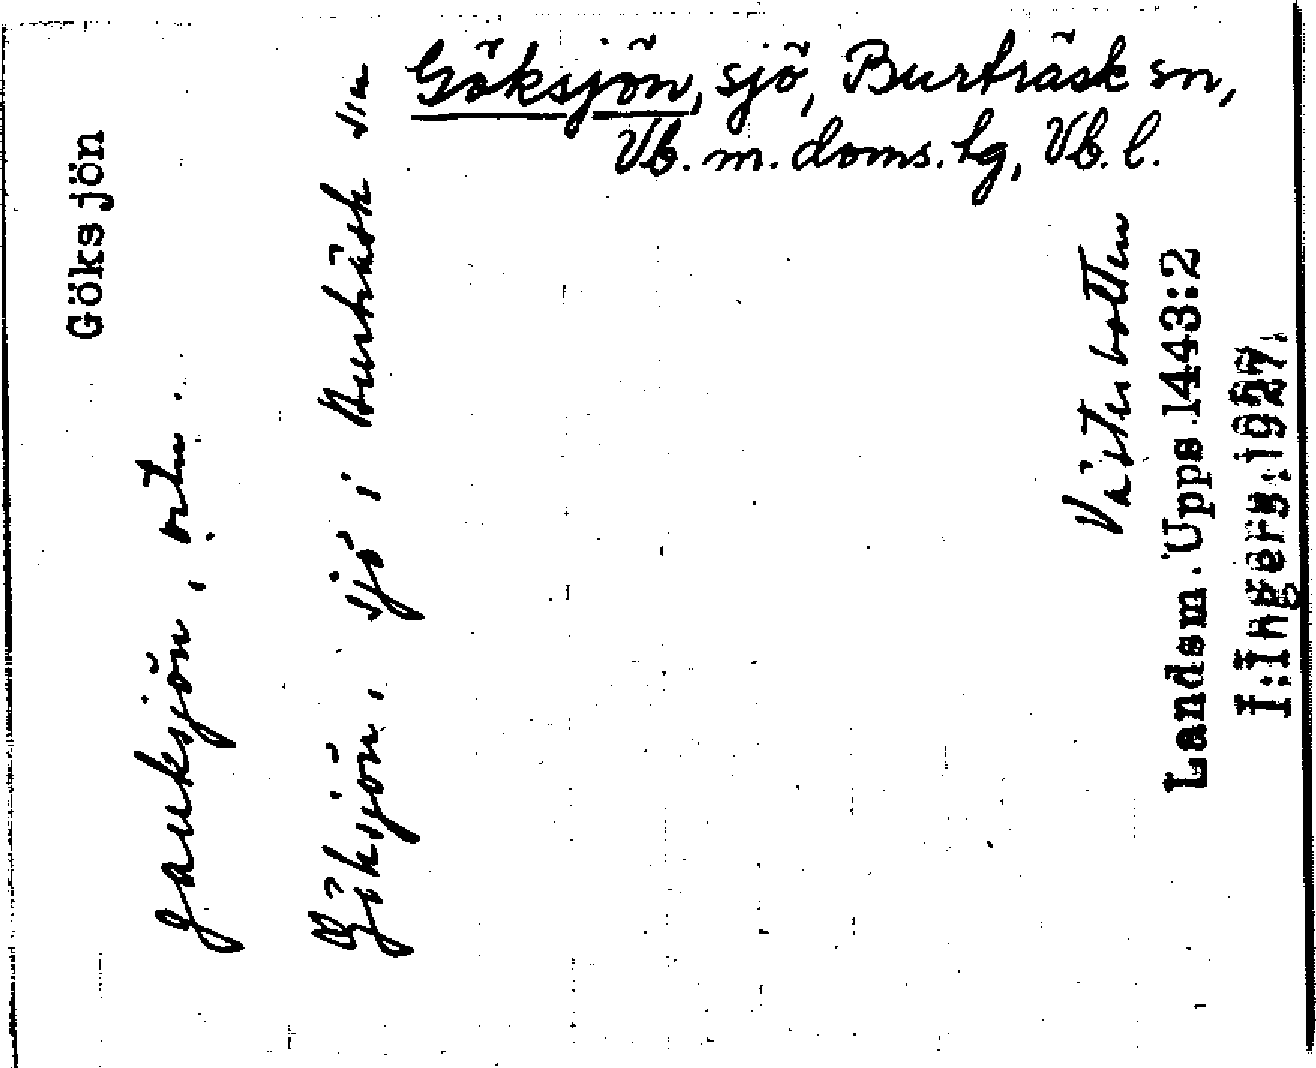 Göksjön, sjö, Burträsk sn,
Vb. m. doms. tg, Vb. l.
Göksjön
gauksjön, ortn.
Göksjön, sjö i Burträsk sn
Västerbotten
Landsm. Upps 1443:2
I. Ingers, 1927.